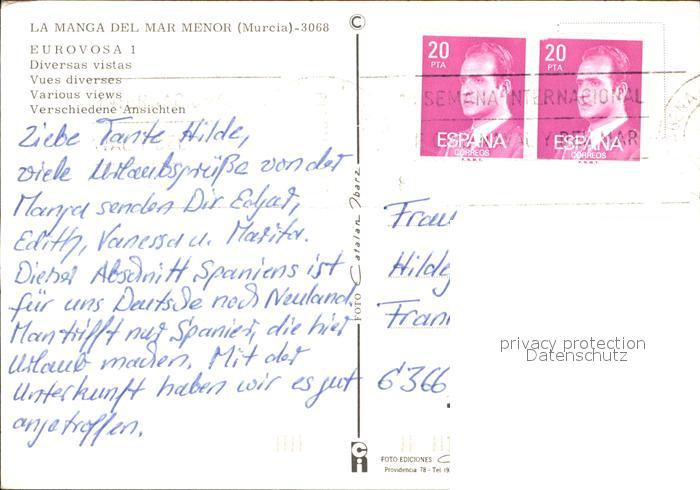 LA MANGA DEL MAR MENOR (Murcia)-3068
EUROVOSA 1
Diversas vistas
Vues diverses
Various views
Verschiedene Ansichten
Liebe Tante Hilde,
viele Urlaubsgrüße von der
Manga senden Dir Edgar,
Edith, Vanessa u. Marita.
Dieser Abschnitt Spaniens ist
für uns Deutsche noch Neuland.
Man trifft nur Spanier, die hier
Urlaub machen. Mit der
Unterkunft haben wir es gut
angetroffen.
©
FOTO Catalan Ibarz
20
PTA
ESPAÑA
CORREOS
F.N.M.T.
20
PTA
ESPAÑA
CORREOS
F.N.M.T.
SEMANA INTERNACIONAL
DEL MAR
Frau
Hilde
Fran
6366
privacy protection
Datenschutz
FOTO-EDICIONES
Providencia 78 - Tel